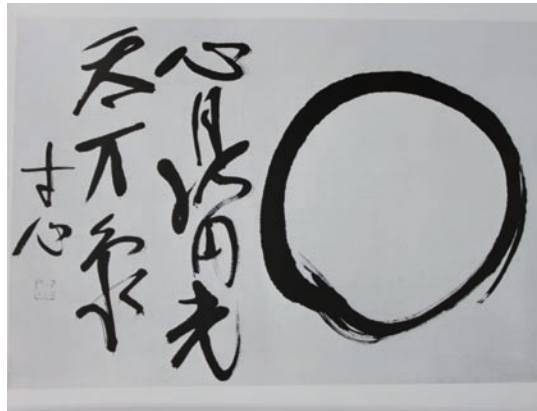 心月孤円光
呑万象
寸心